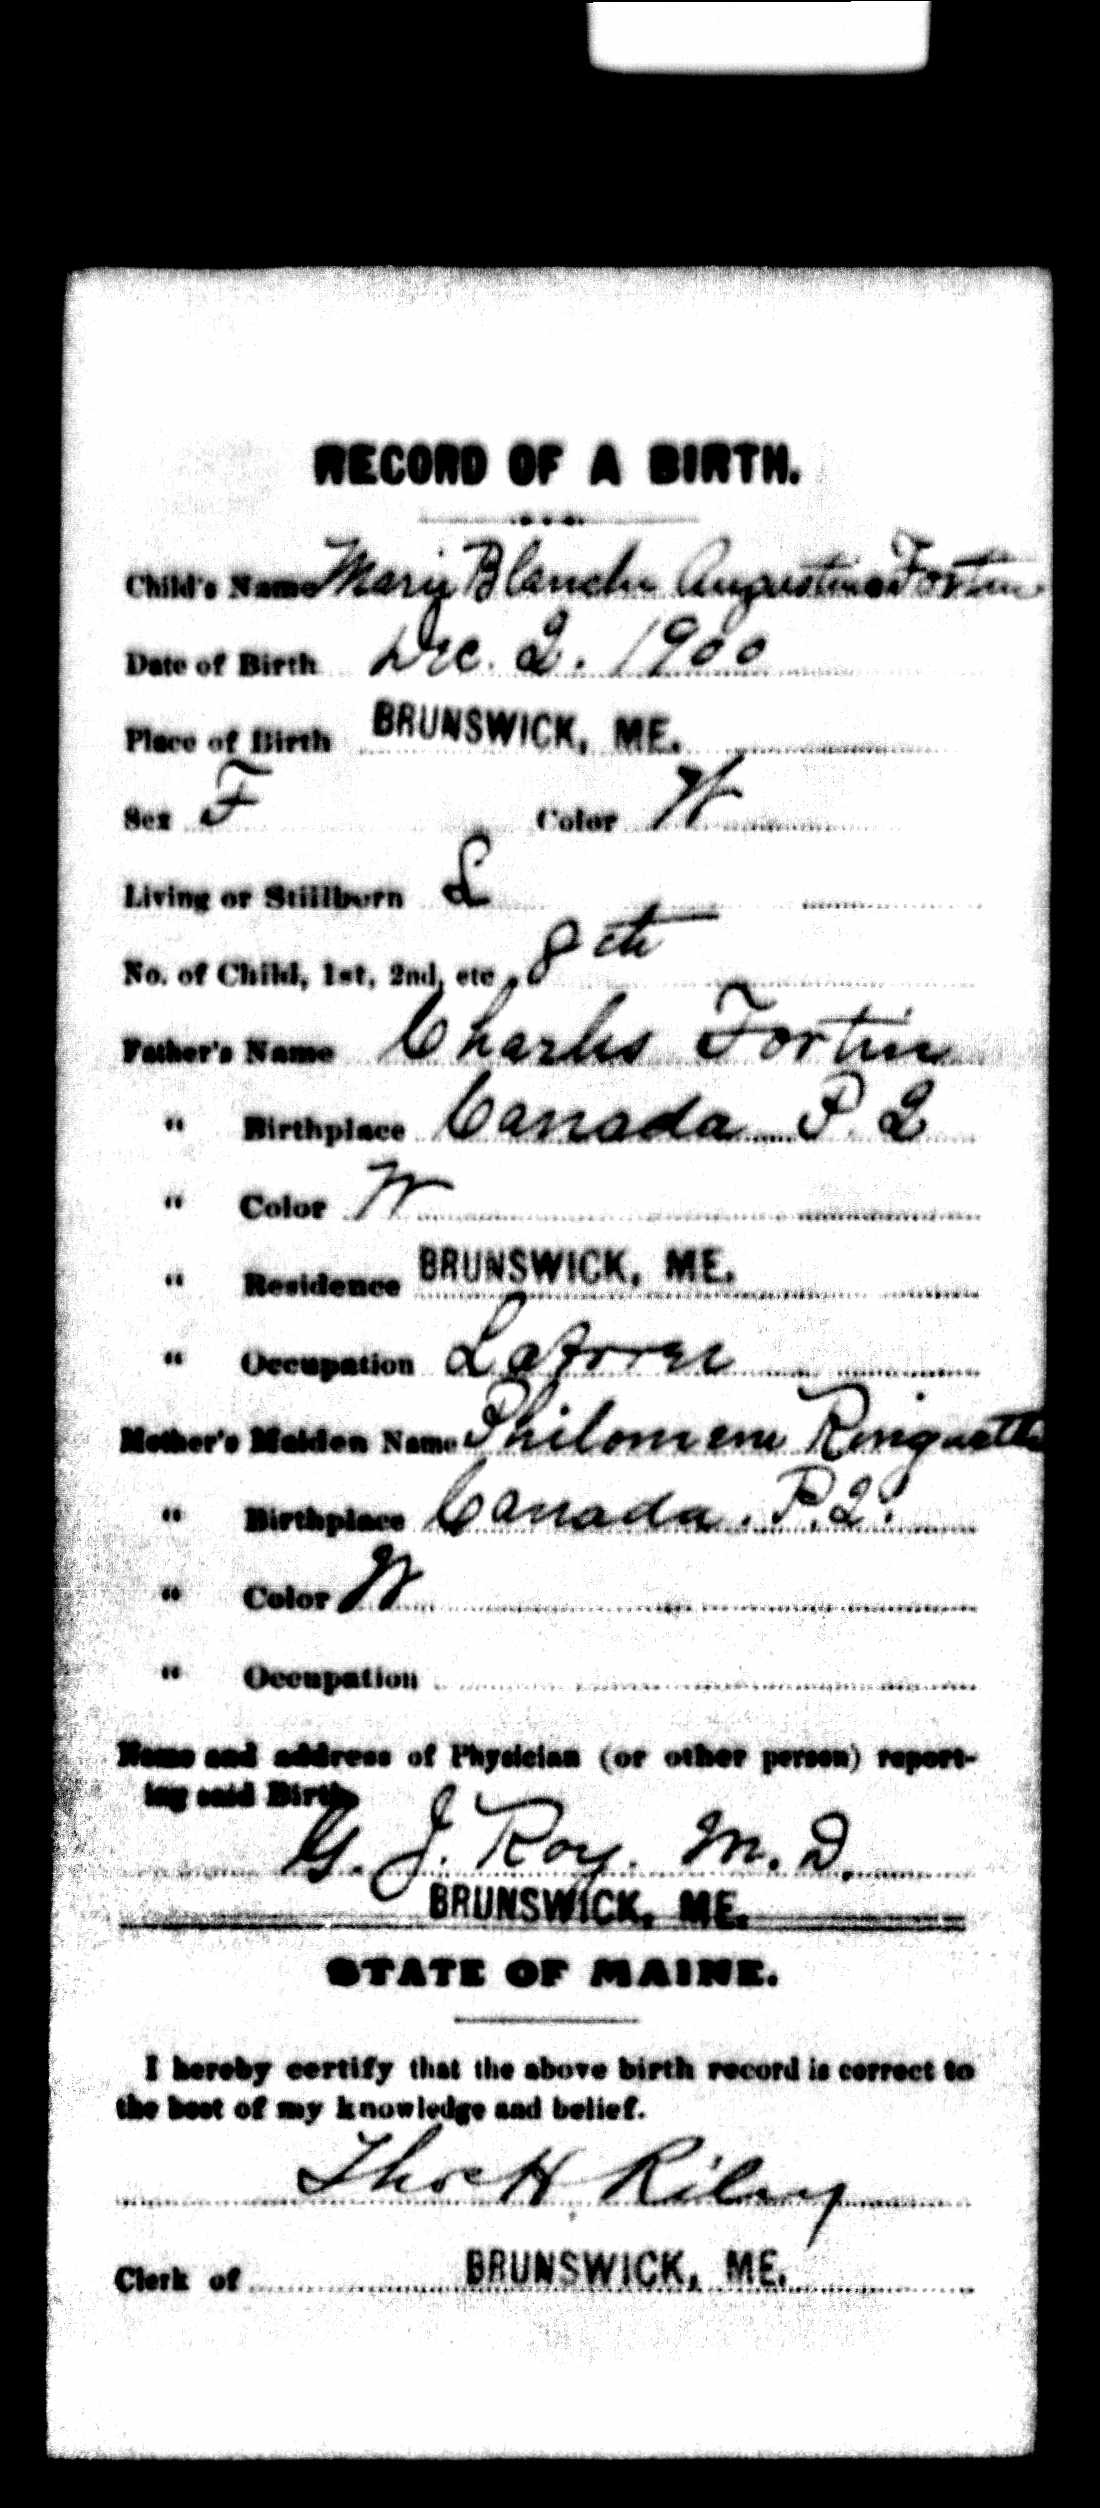 RECORD OF A BIRTH.
Child's Name Marie Blanche Augustine Fortin
Date of Birth Dec. 2. 1900
Place of Birth BRUNSWICK, ME.
Sex F Color W
Living or Stillborn L
No. of Child, 1st, 2nd, etc. 8th
Father's Name Charles Fortin
" Birthplace Canada P. Q
" Color W
" Residence BRUNSWICK, ME.
" Occupation Laborer
Mother's Maiden Name Philomene Ringuette
" Birthplace Canada. P.Q.
" Color W
" Occupation
Name and address of Physician (or other person) report-
ing said Birth
G. J. Roy. M. D.
BRUNSWICK, ME.
STATE OF MAINE.
I hereby certify that the above birth record is correct to
the best of my knowledge and belief.
Thos H Riley
Clerk of BRUNSWICK, ME.